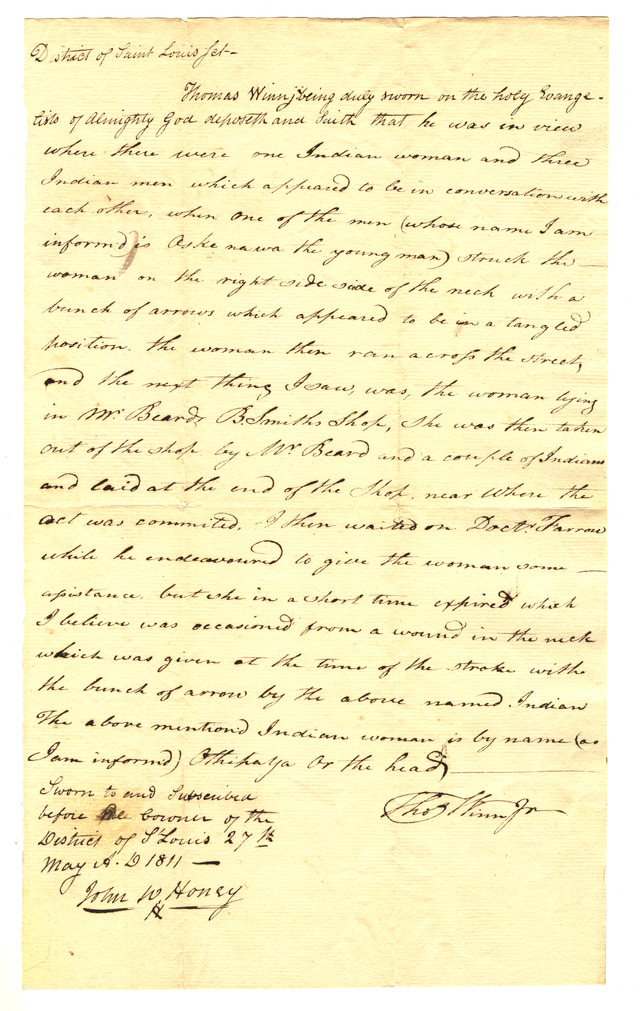 District of Saint Louis Sct—
Thomas Winn Jr being duly sworn on the holy Evange-
lists of Almighty God deposeth and Saith that he was in view
where there were one Indian woman and three
Indian men which appeared to be in conversation with
each other, when one of the men (whose name I am
informd is Aske nawa the young man) struck the —
woman on the right side side of the neck with a
bunch of arrows which appeared to be in a tangled
position. the woman then ran across the street,
and the next thing I saw, was, the woman lying
in Mr Beards B. Smiths Shop, She was then taken
out of the shop by Mr Beard and a couple of Indians
and laid at the end of the Shop, near where the
act was commited, I then waited on Doctr Farrow
while he endeavoured to give the woman some —
assistance. but she in a short time expired which
I believe was occasioned from a wound in the neck
which was given at the time of the stroke with
the bunch of arrow by the above named Indian
The above mentiond Indian woman is by name (as
I am informd) Othipa Ya Or the head —
Sworn to and Subscribed
before Cowner of the
District of St Louis 27th
May A. D 1811 —
John W Honey
Thos Winn Jr